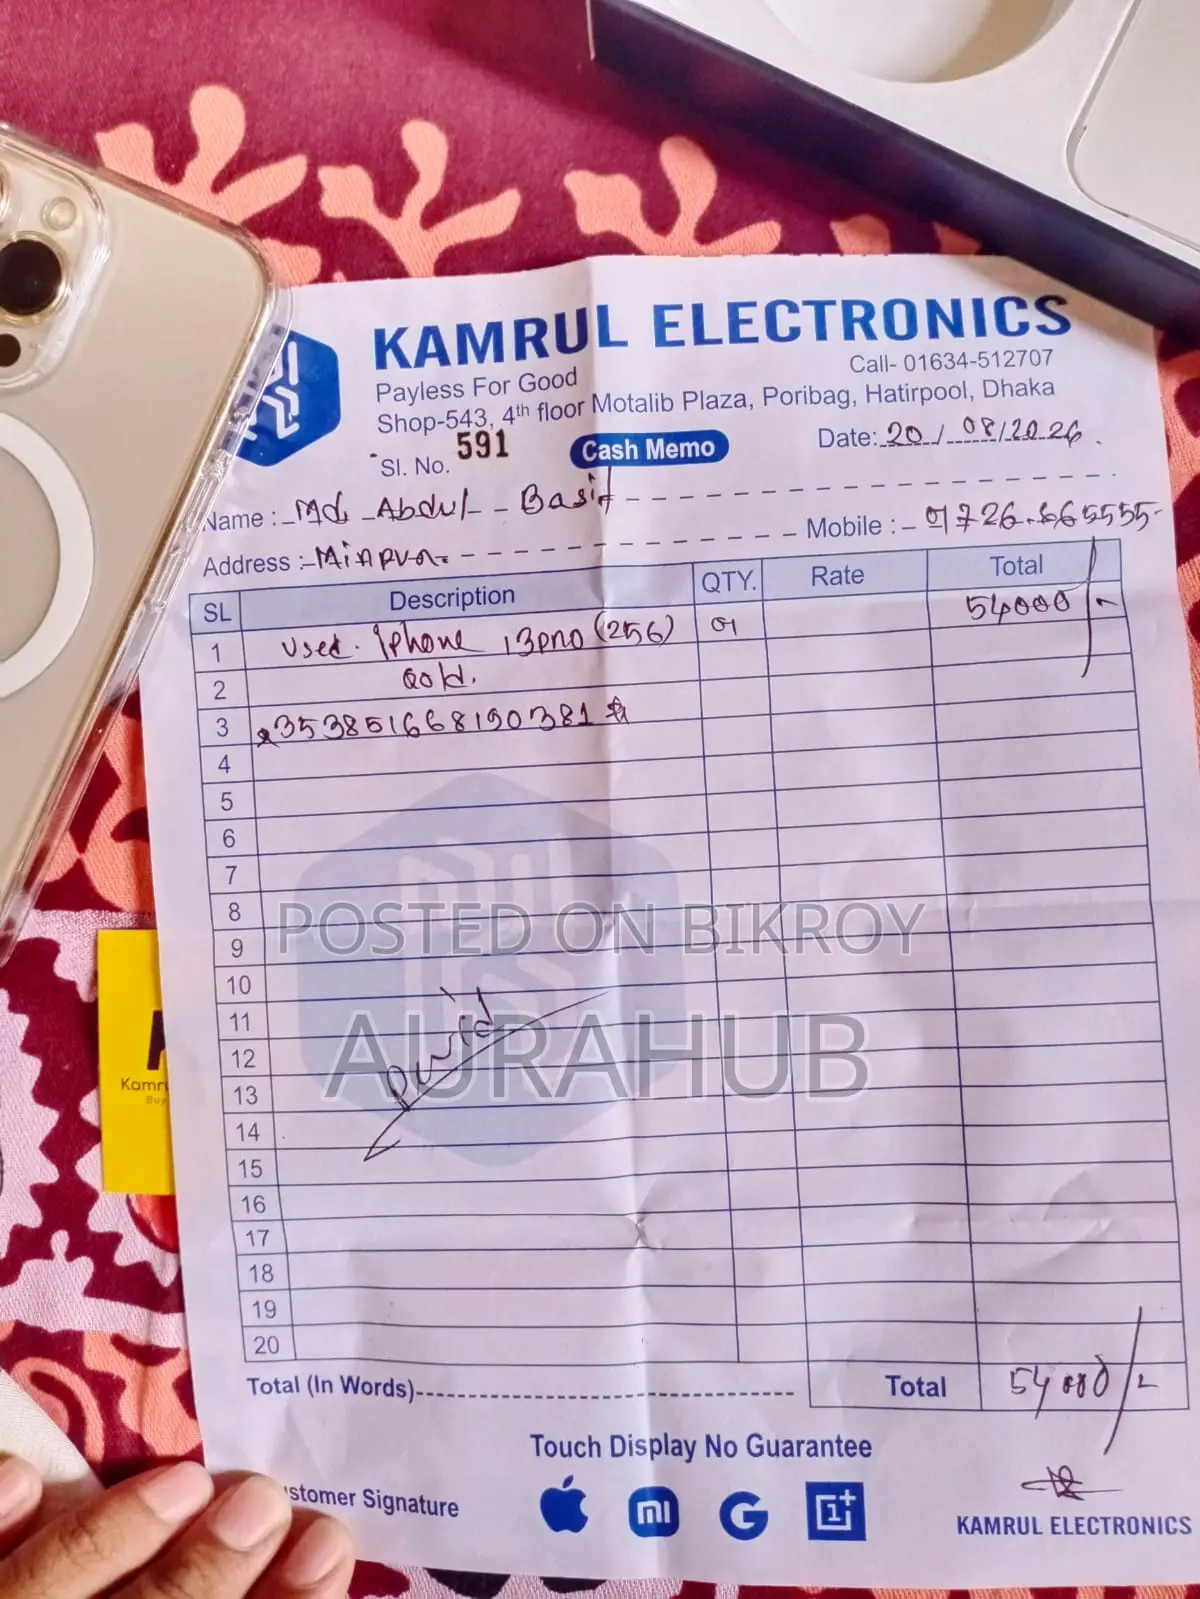 KAMRUL ELECTRONICS
Payless For Good
Call- 01634-512707
Shop-543, 4th floor Motalib Plaza, Poribag, Hatirpool, Dhaka
Sl. No. 591
Cash Memo
Date: 20/08/2026
Name : Md. Abdul Basit
Address :
Mobile : 01726-665555
SL Description QTY. Rate Total
1 Used. Iphone 13pro (256) 01 54000/-
2 Gold.
3 *353851668190381*
4
5
6
7
8
POSTED ON BIKROY
9
10
11
12
AURAHUB
13
14
15
16
17
18
19
20
Total (In Words)
Total 54000/-
Touch Display No Guarantee
stomer Signature
mi
G
1+
KAMRUL ELECTRONICS
Kamr
Buy